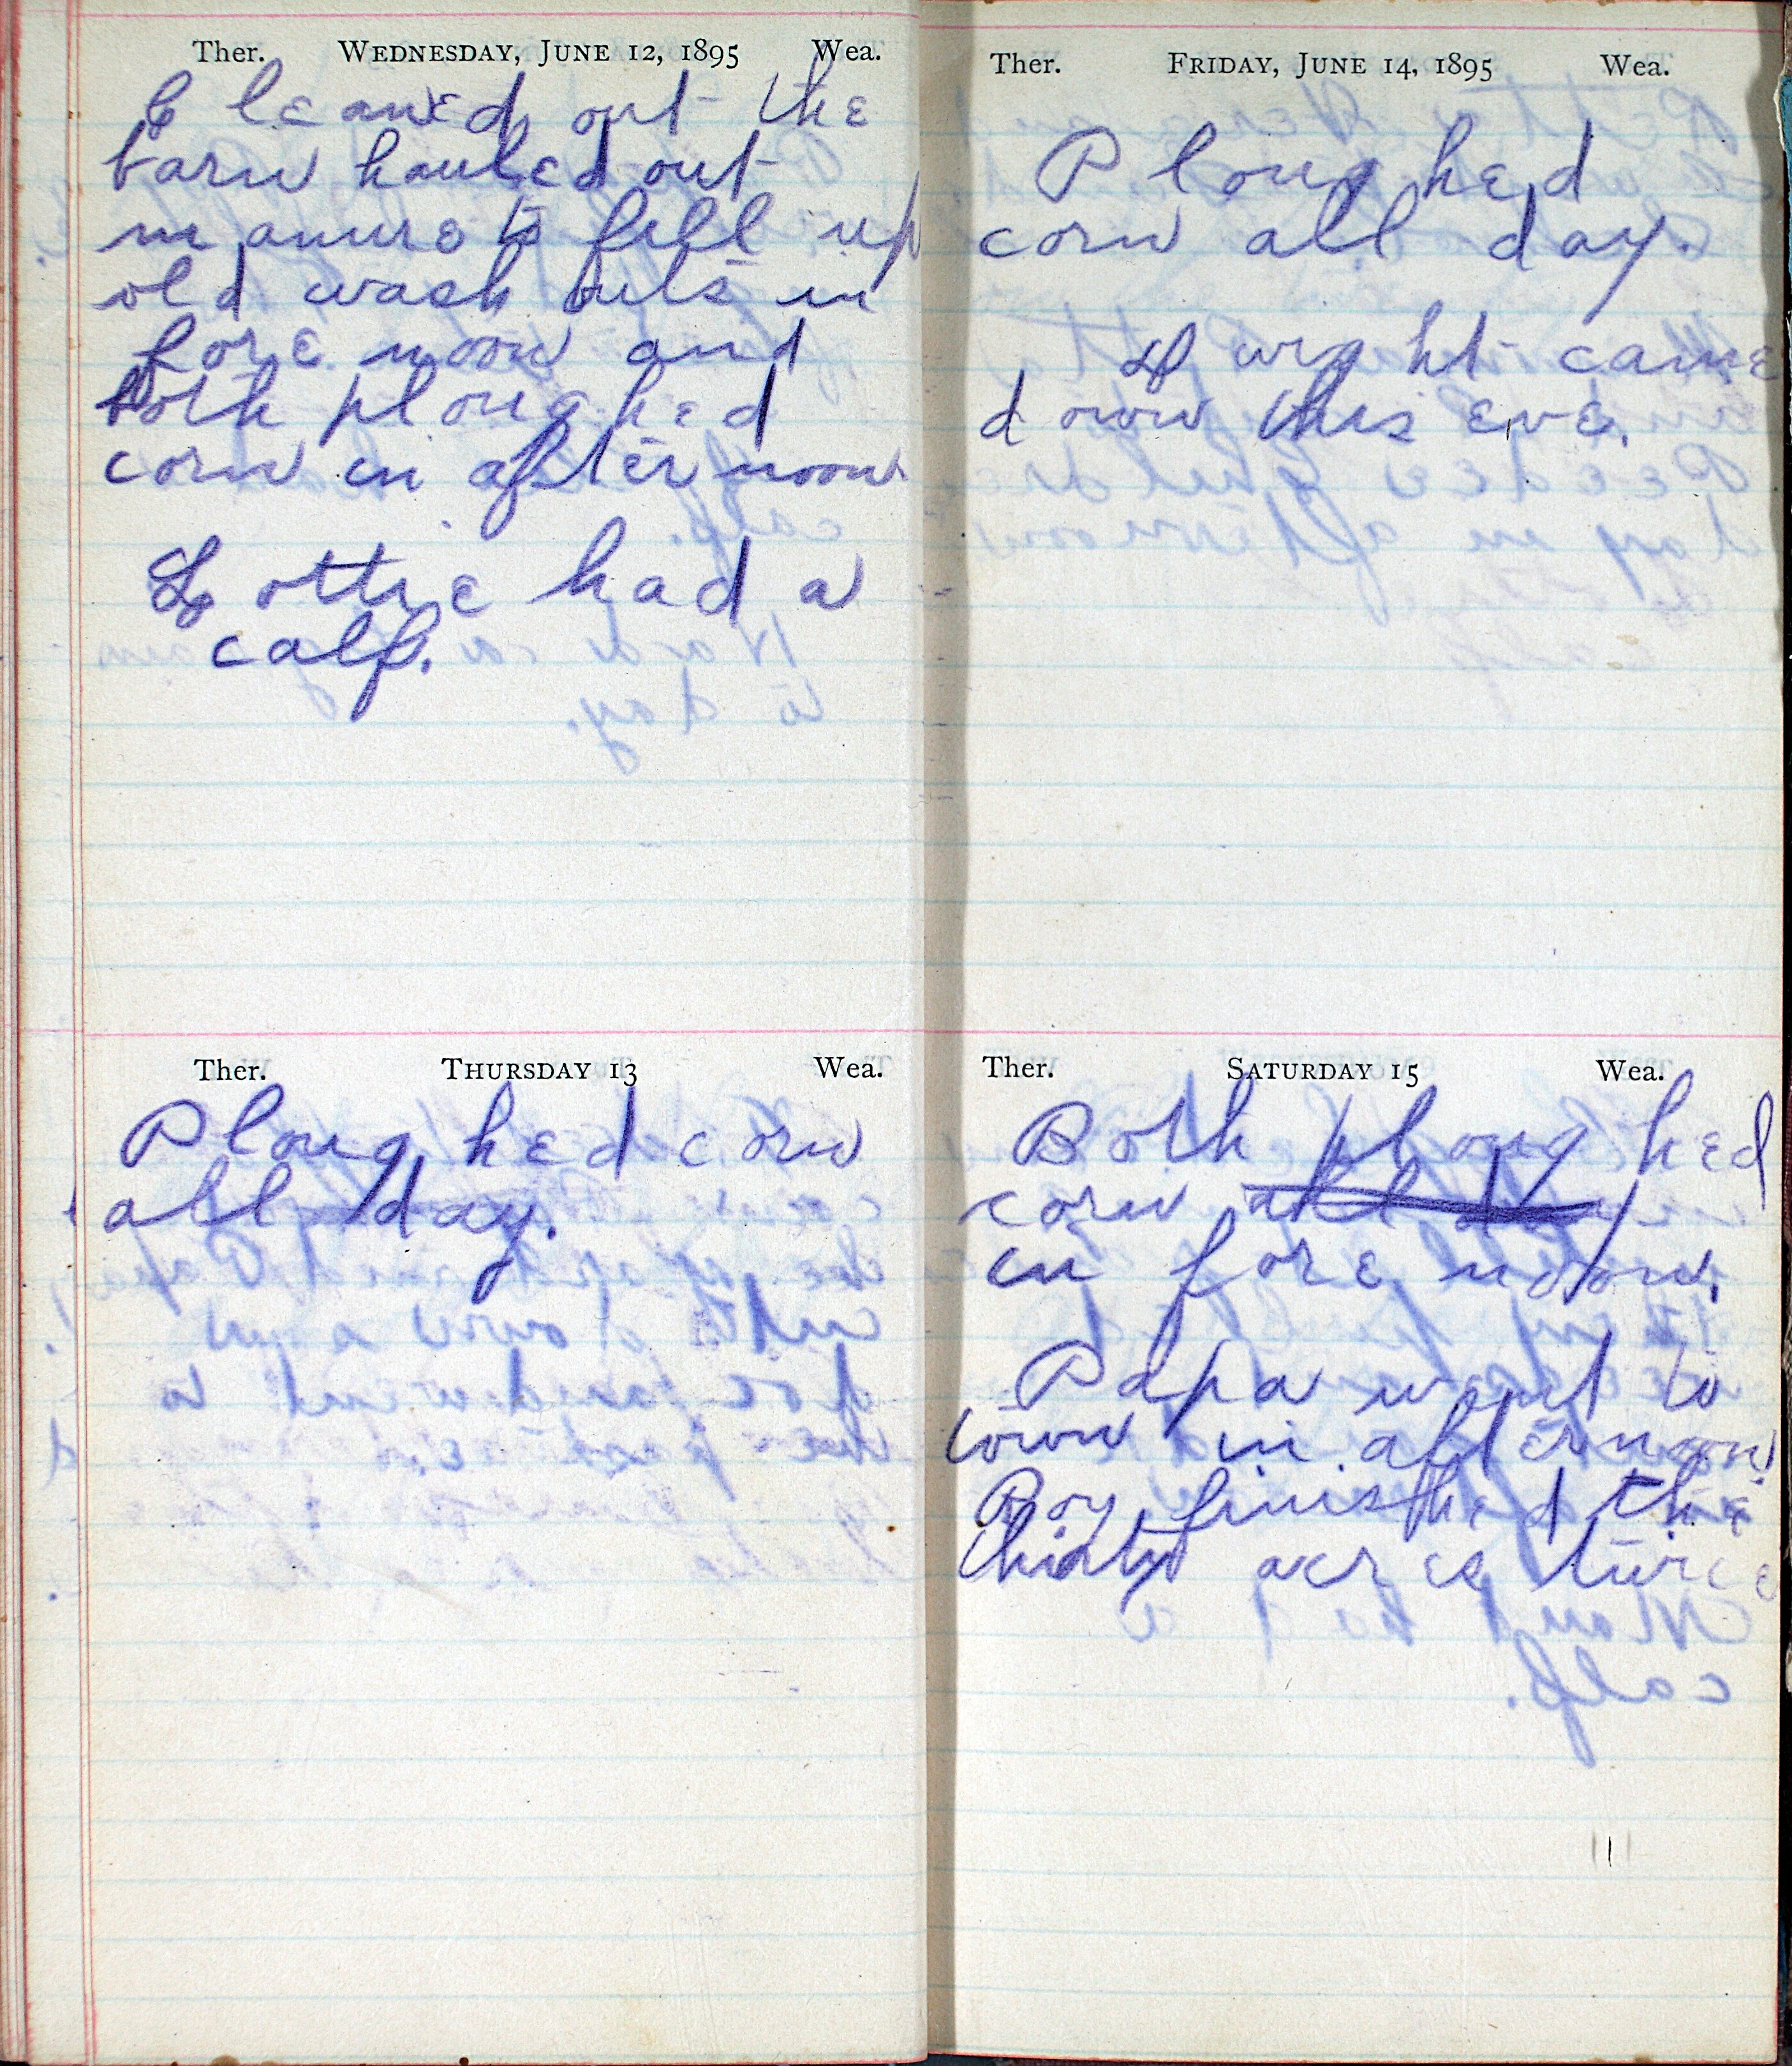 Ther. WEDNESDAY, JUNE 12, 1895 Wea.
Cleaned out the
barn hauled out
manure to fill up
old wash outs in
fore noon and
both ploughed
corn in afternoon
Lottie had a
calf.
Ther. THURSDAY 13 Wea.
Ploughed corn
all day.
Ther. FRIDAY, JUNE 14, 1895 Wea.
Ploughed
corn all day.
Dwight came
down this eve.
Ther. SATURDAY 15 Wea.
Both ploughed
corn all day
in fore noon.
Papa went to
town in afternoon
Roy finished the
thirty acres twice